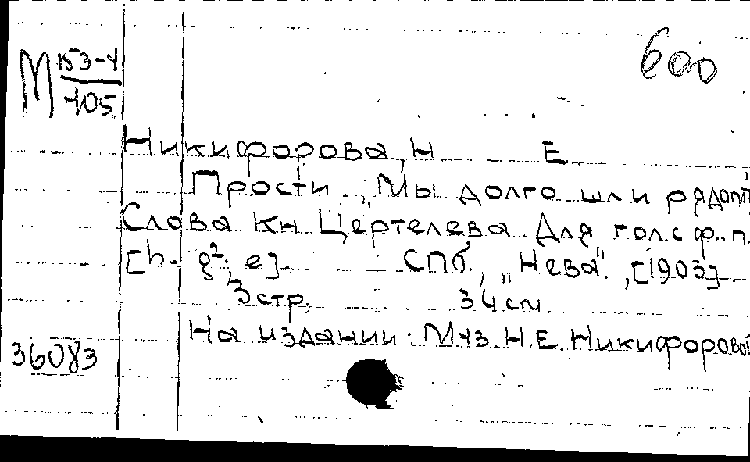 600
М 153-4
105
Никифорова, Н Е
Прости. „Мы долго шли рядом"
Слова кн. Цертелева. Для гол. с ф.-п.
[h - g²; e] СПб, „Нева", [1903]
3 стр. 34 см
На издании: Муз. Н. Е. Никифоровой
36083